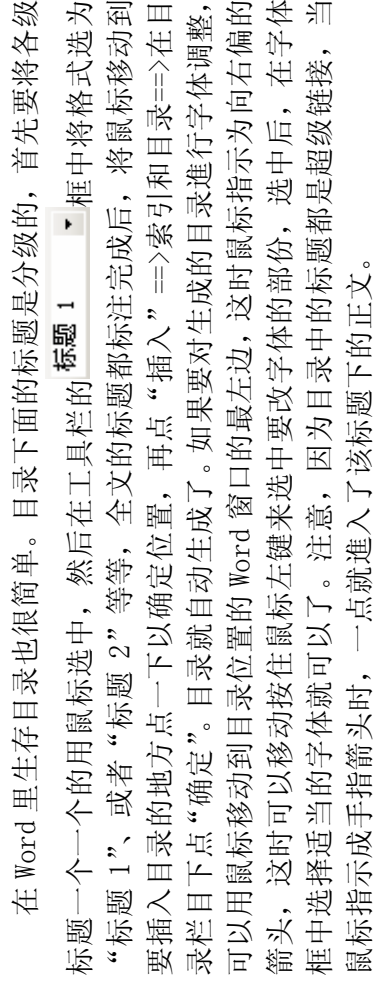 在 Word 里生存目录也很简单。目录下面的标题是分级的，首先要将各级
标题一个一个的用鼠标选中，然后在工具栏的 标题 1 框中将格式选为
“标题 1”、或者“标题 2”等等，全文的标题都标注完成后，将鼠标移动到
要插入目录的地方点一下以确定位置，再点“插入”==>索引和目录==>在目
录栏目下点“确定”。目录就自动生成了。如果要对生成的目录進行字体调整，
可以用鼠标移动到目录位置的 Word 窗口的最左边，这时鼠标指示为向右偏的
箭头，这时可以移动按住鼠标左键来选中要改字体的部份，选中后，在字体
框中选择适当的字体就可以了。注意，因为目录中的标题都是超级链接，当
鼠标指示成手指箭头时，一点就進入了该标题下的正文。